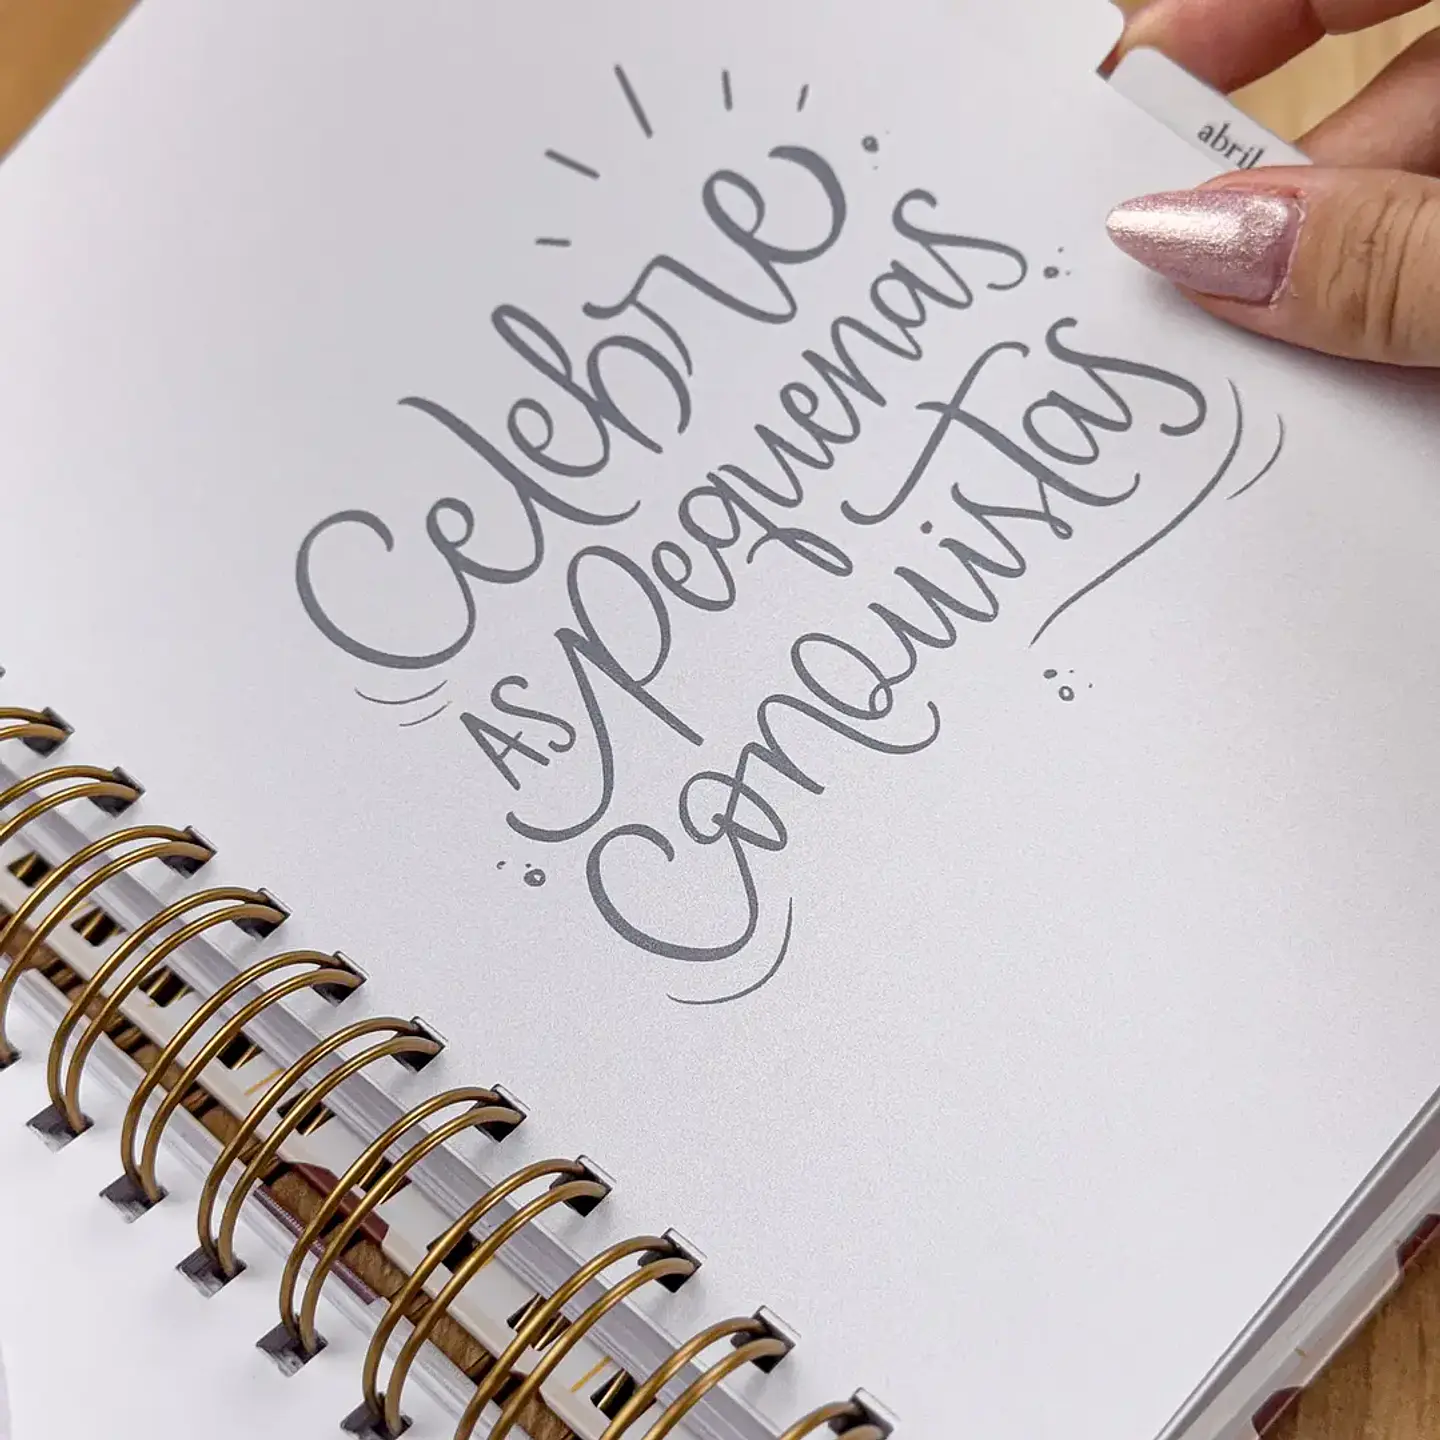 abril
Celebre
AS pequenas
Conquistas